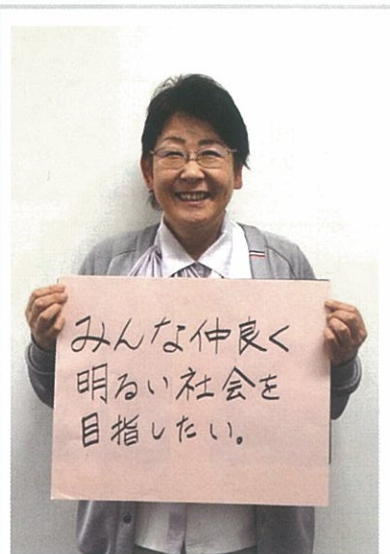 みんな仲良く
明るい社会を
目指したい。